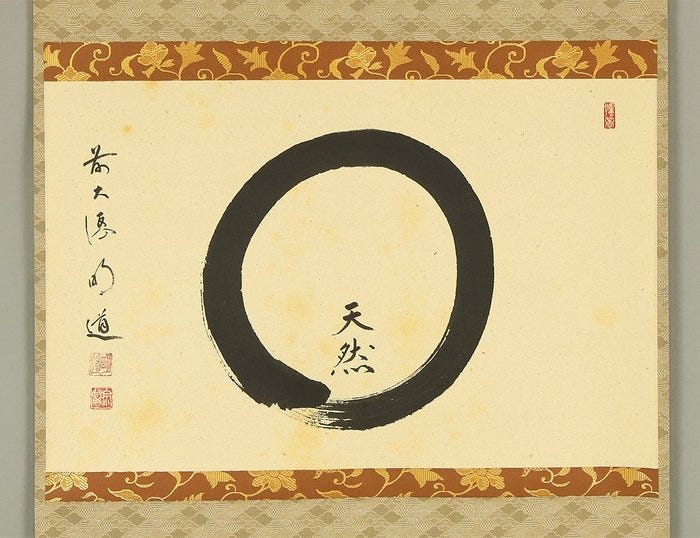 天然
前大徳明道